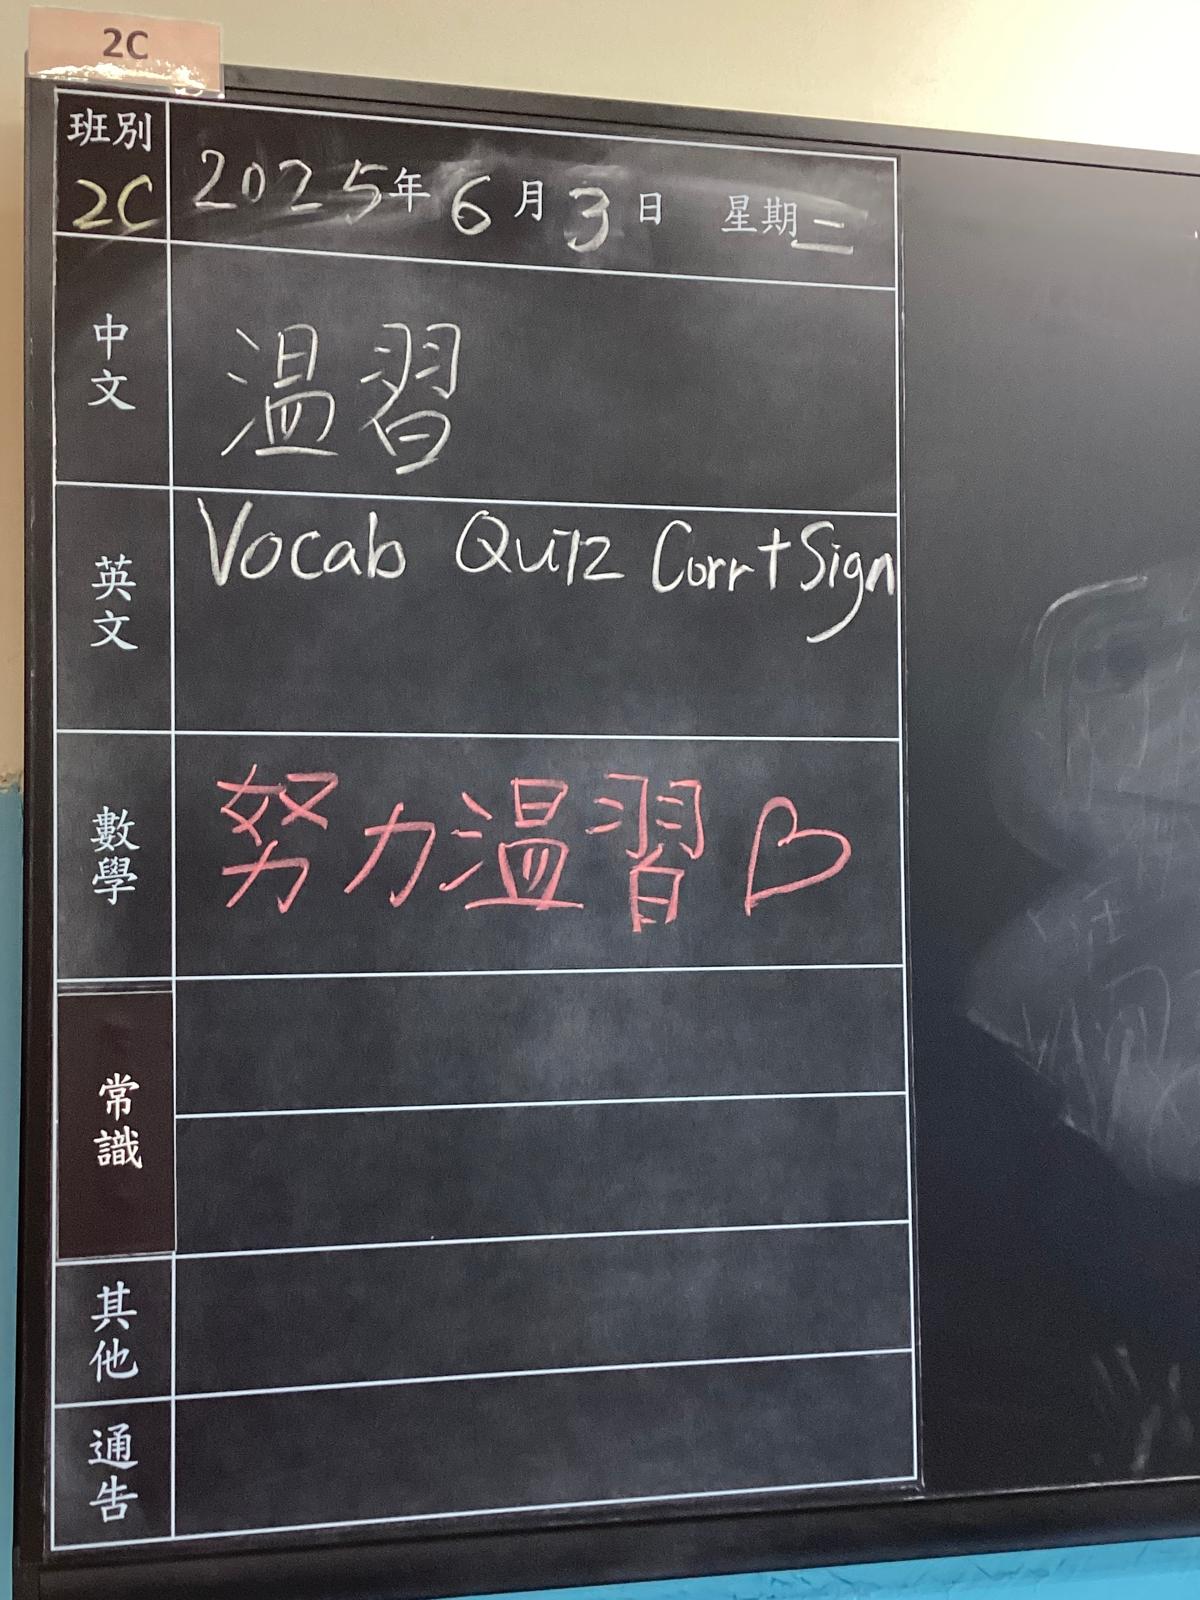 2C
班別
2C
2025年6月3日 星期二
中文
温習
英文
Vocab Quiz Corr+Sign
數學
努力温習
常識
其他
通告